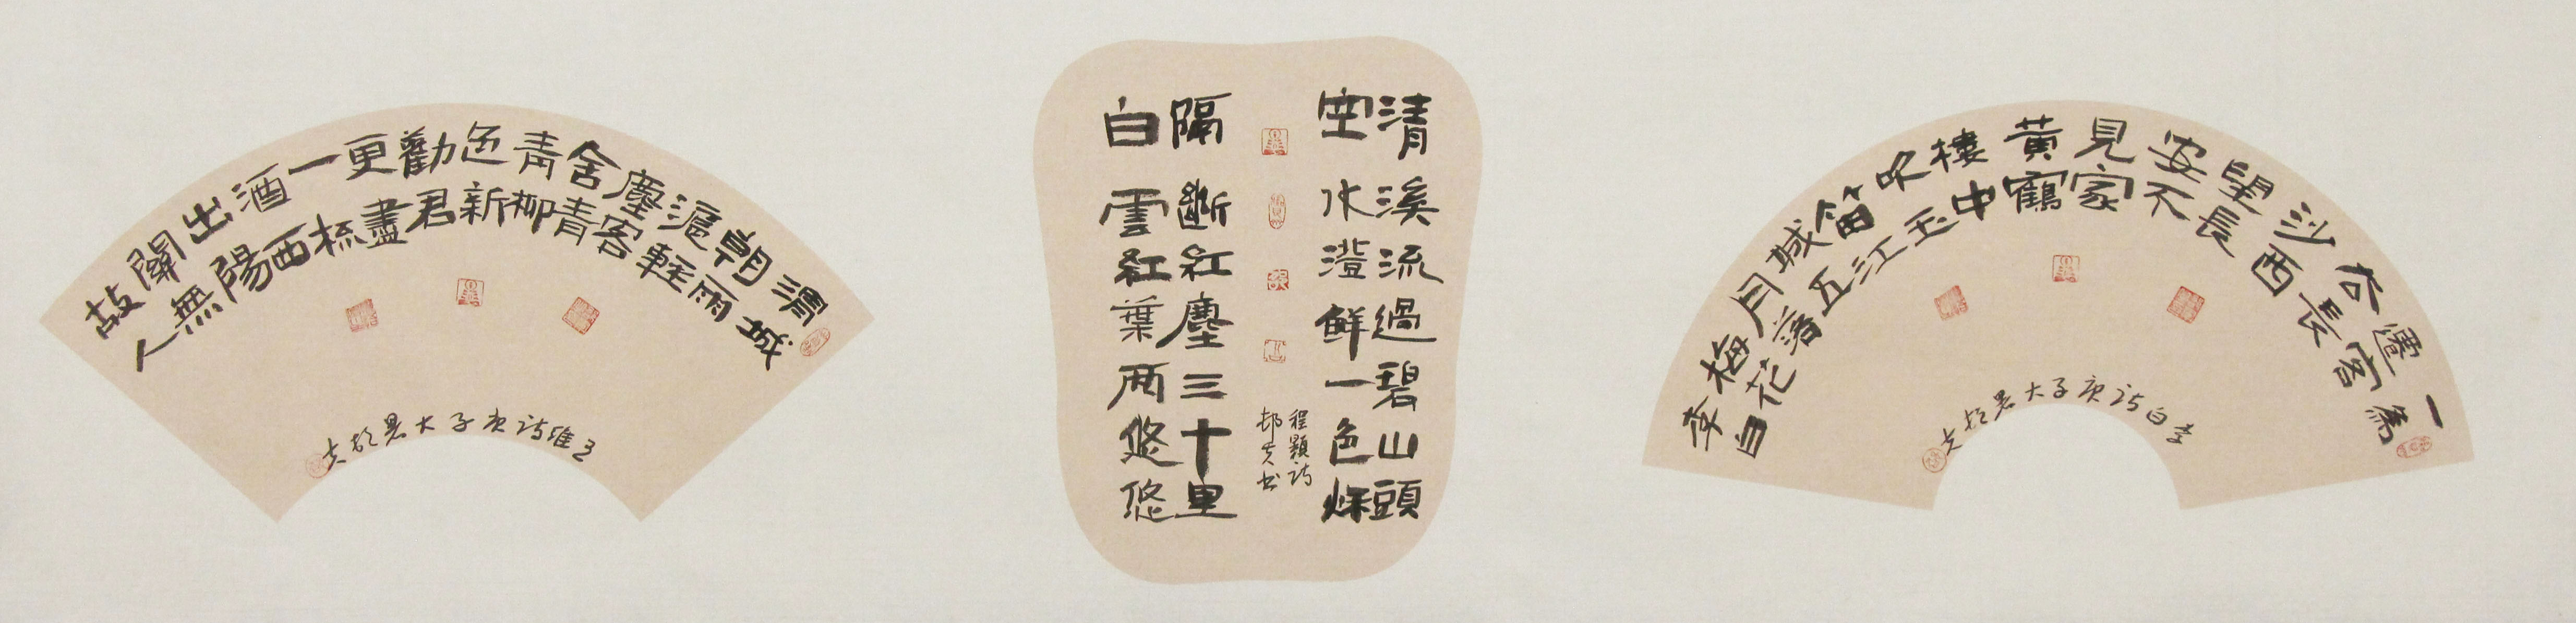 一為
遷客
去長
沙西
望長
安不
見家
黃鶴
樓中
吹玉
笛江
城五
月落
梅花
李白
李白詩庚子大暑邨夫
清溪流過碧山頭
空水澄鮮一色秌
程顥詩
邨夫书
隔斷紅塵三十里
白雲紅葉两悠悠
渭城
朝雨
浥輕
塵客
舍青
青柳
色新
勸君
更盡
一桮
酒西
出陽
關無
故人
王維詩庚子大暑邨夫